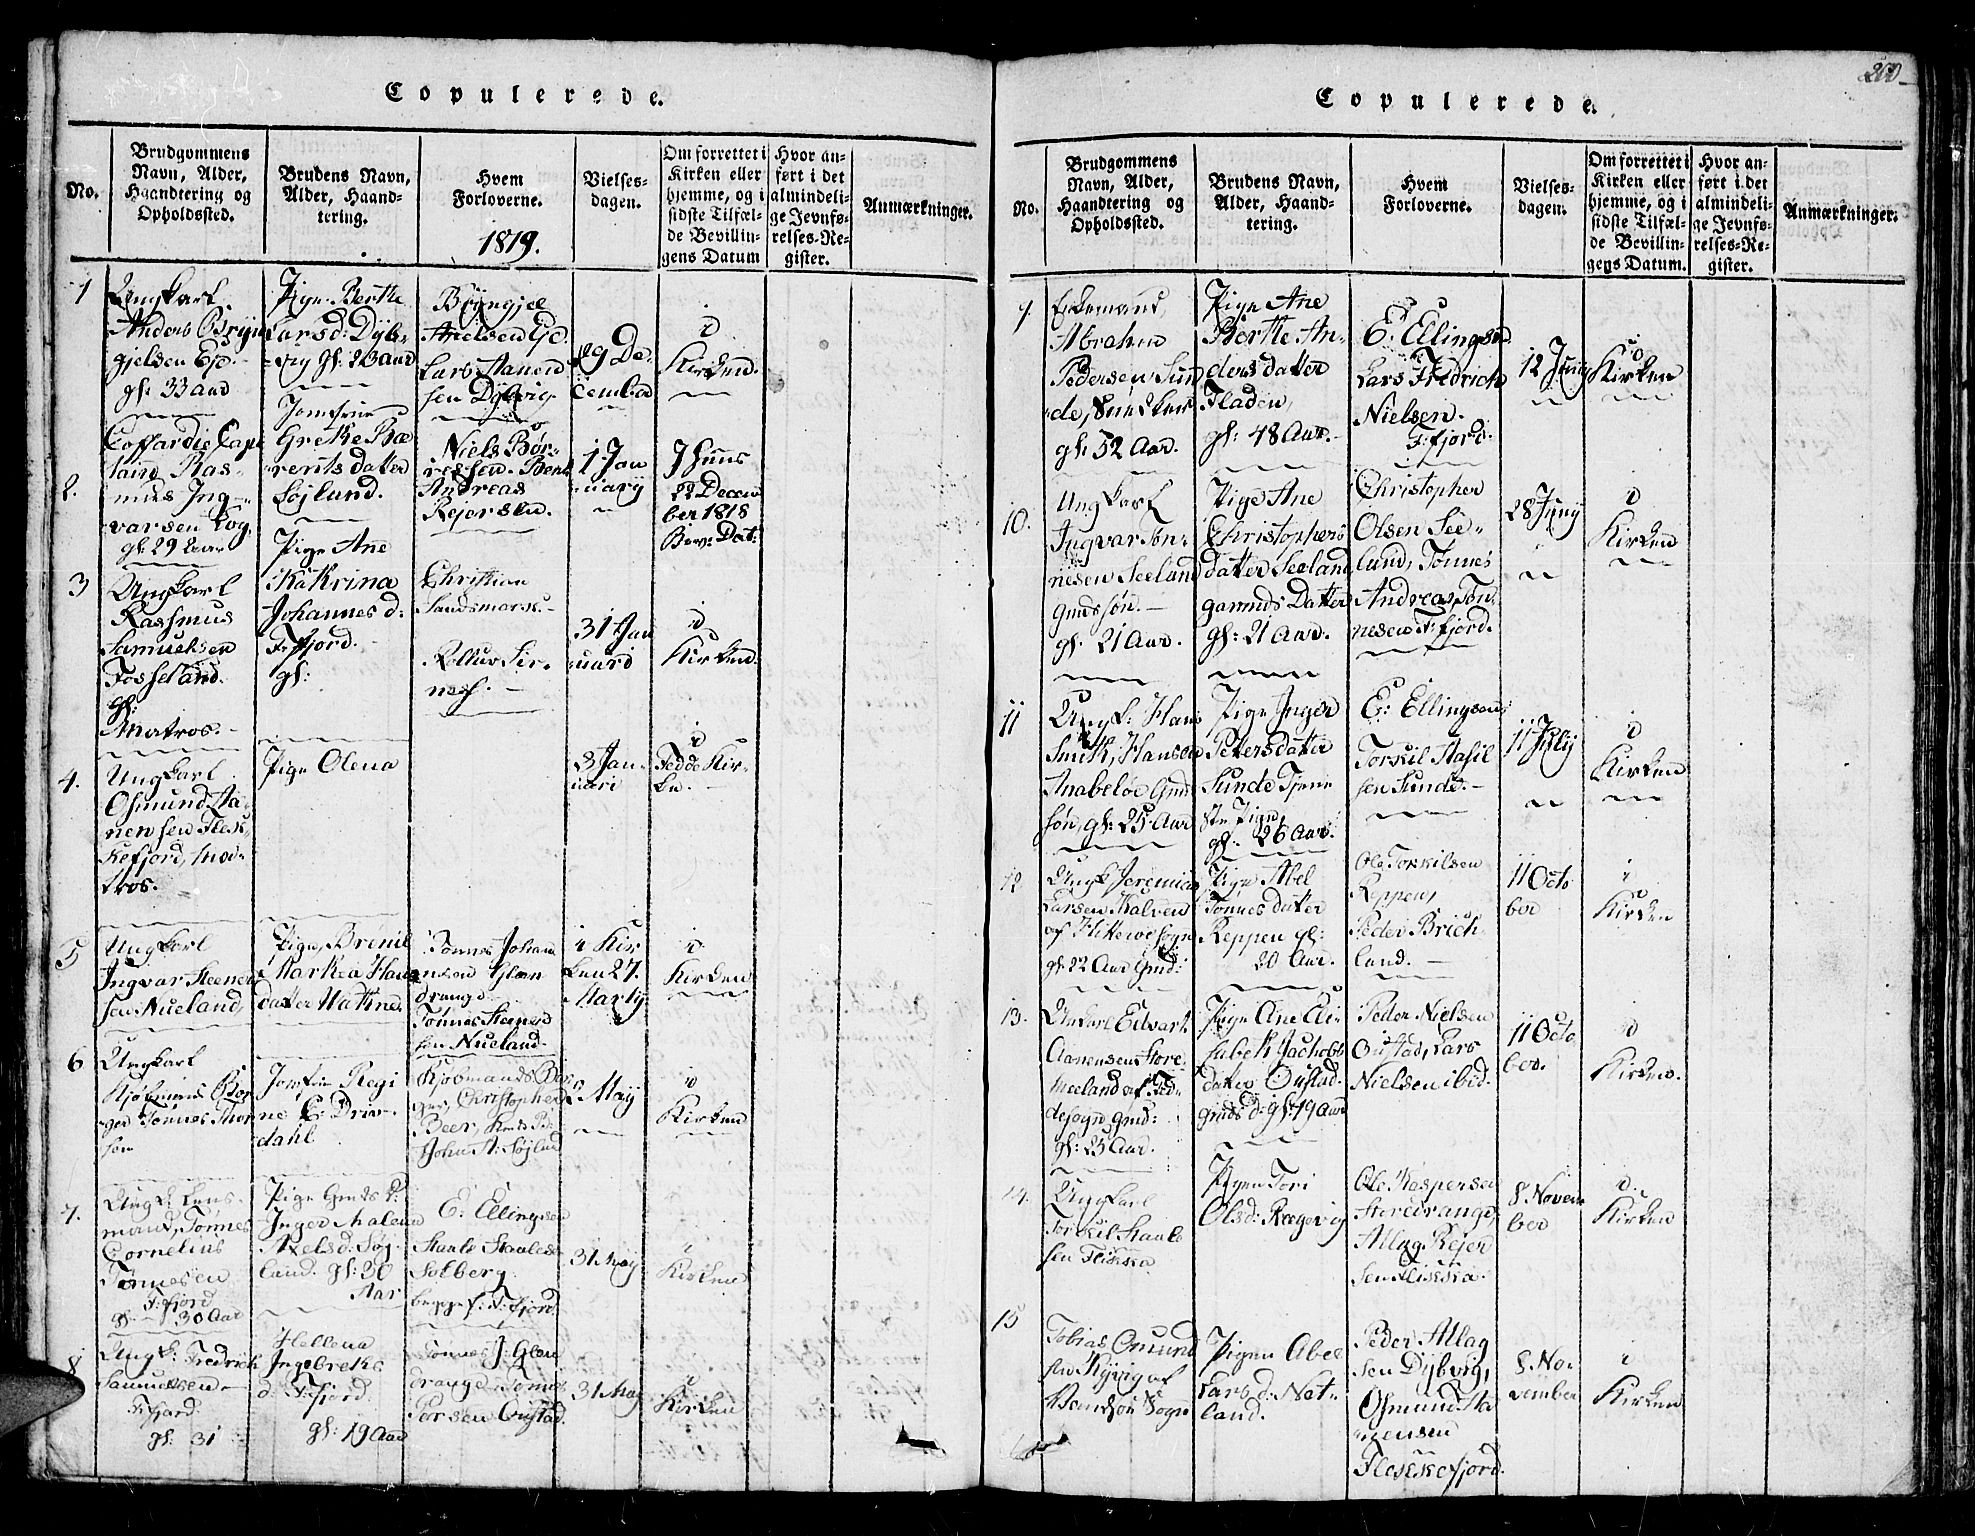 Copulerede.
No.
Brudgommens
Navn, Alder,
Haandtering og
Opholdssted.
Brudens Navn,
Alder, Haand-
tering.
Hvem
Forloverne.
1819.
Vielses-
dagen.
Om forrettet i
Kirken eller
hjemme, og i
sidste Tilfæl-
de Bevillin-
gens Datum
Hvor an-
ført i det
almindeli-
ge Jevnfø-
relses-Re-
gister.
Anmærkninger.
1
Ungkarl
Anders Bryn
gjelsen Eje.
gl: 33 Aar
Pige Berthe
Larsd: Dyb-
vig gl: 23 Aar
Bryngjel
Anielsen Eje.
Lars Aanen
sen Dybvig.
29 De-
cember
i
Kirken.
2.
Coffardie Capt
tain Ras-
mus Ing-
varsen Log
gl: 29 Aar
Jomfrue
Grethe Be
rents datter
Løjlund.
Niels Bør-
resen. Bent
Andreas
Rejersen.
1 Jan
uary
I Huus
22 Decem
ber 1818
Bev: Dat:
3
Ungkarl
Rasmus
Samuelsen
Fosseland.
gl:
Matros.
Pige Ane
Kathrina
Johannes d:
F:fjord.
gl:
Christian
Sandsmark.
Sir-
nes.
31 Jan
uari
i
Kirken.
4.
Ungkarl
Osmund Aa-
nensen Flek
kefjord, Ma-
tros.
Pige Olena
3 Jan-
uari
i
Fedde Kir-
ke.
5
Ungkarl
Ingvar Steener
sen Nueland,
Pige, Brønil
Marthea Hans
datter Hattnes
Tønnes Johan
nesen Glen
drange
Tønnes Steener
sen Nueland.
i Kir
ken 27.
Marty
i
Kirken
6
Ungkarl
Kjøbmans Bor
ger Tønnes Thor
sen
Jomfrue Regi
ne E: Drie-
dahl.
Kjøbmands Bor
ger, Christopher
Beer,
John A: Løjlund
2 May
i
Kirken
7.
Ungk: Lens-
mand, Tønnes
Cornelius
Tønnesen
F:fjord
gl: 30 Aar
Pige Gmds d:
Inger Malena
Axelsd: Løj
lund. gl: 30
Aar
E: Ellingsen
Staale Staales
Solberg.
begge f: F:fjord.
31 May
i
Kirken
8
Ungk: Fredrich
Samuelsen
F:fjord.
gl: 31
Hellena
Ingebreth
d. F:fjord.
gl: 19 Aar
Tønnes J: Glen
drange. Tønnes
Torsen Oustad.
31 May
i
Kirken
200
Copulerede.
No.
Brudgommens
Navn, Alder,
Haandtering og
Opholdssted.
Brudens Navn,
Alder, Haand-
tering.
Hvem
Forloverne.
Vielses-
dagen.
Om forrettet i
Kirken eller
hjemme, og i
sidste Tilfæl-
de Bevillin-
gens Datum.
Hvor an-
ført i det
almindeli-
ge Jevnfø-
relses-Re-
gister.
Anmærkninger.
9.
Enkemand,
Abraham
Pedersen Sun
de, Snedker
gl: 52 Aar.
Pige Ane
Berthe An-
dersdatter
Fladen,
gl: 48 Aar.
E: Ellingsen
Lars Fredrich
Nielsen.
F:fjord.
12 Juny
i
Kirken
10.
Ungkarl
Ingvar Tøn-
nesen Seeland
Gmdssøn.
gl: 21 Aar.
Pige Ane
Christophers
datter Seeland
gamds Datter
gl: 21 Aar.
Christopher
Olsen See-
land, Tønnes
Andreas Tøn
nesen F:fjord.
28 Juny
i
Kirken
11
Ungk: Hans
Smith, Hansen
Anabeløe Gmds
søn, gl: 25 Aar
Pige Inger
Petersdatter
Sunde Tjene
ste Pige,
gl: 26 Aar.
E: Ellingsen,
Torkil Aasil
sen Sunde.
11 July
i
Kirken
12
Ungk Jeremias
Larsen Kalven
af Hitteroe Sogn
gl: 22 Aar Gmd:
Pige Abel
Tønnes datter
Reppen gl:
20 Aar.
Ole Torkilsen
Reppen,
Peder Brich-
land.
11 Octo
ber
i
Kirken
13.
Unkarl Edvart
Aanensen Store
Meeland af Fed-
de sogn, gmd:
gl: 25 Aar.
Pige Ane Eli-
sabeth Jachobs
datter Oustad.
gmds d: gl: 19 Aar
Peder Nielsen
Oustad, Lars
Nielsen ibid.
11 Octo
ber.
i
Kirken.
14.
Ungkarl
Torkil Staale
sen Flikka
Pigen Tori
Olsd: Regevig
Ole Kaspersen
Storedrange,
Atlag Rejer
sen Flikka.
8 Novem
ber
i
Kirken
15
Tobias Omund
sen Ryvig af
Vandsøe Sogn
Pigen Abel
Lars d: Net-
land.
Peder Atlag
sen Dybvig,
Osmund Aa
nensen
Flekkefjord.
8 No-
vember
i
Kirken